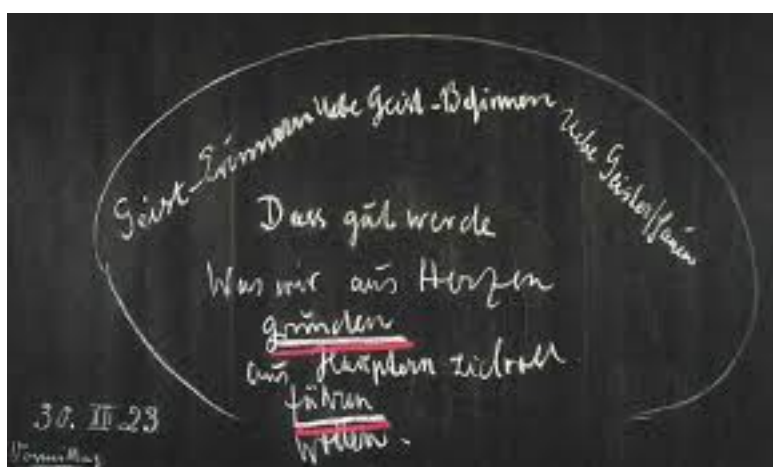 Geist-Erinnern Uebe Geist-Besinnen Uebe Geisterschauen
Dass gut werde
Was wir aus Herzen
gründen
aus Häuptern zielvoll
führen
wollen.
30. XII.23
Vormittag